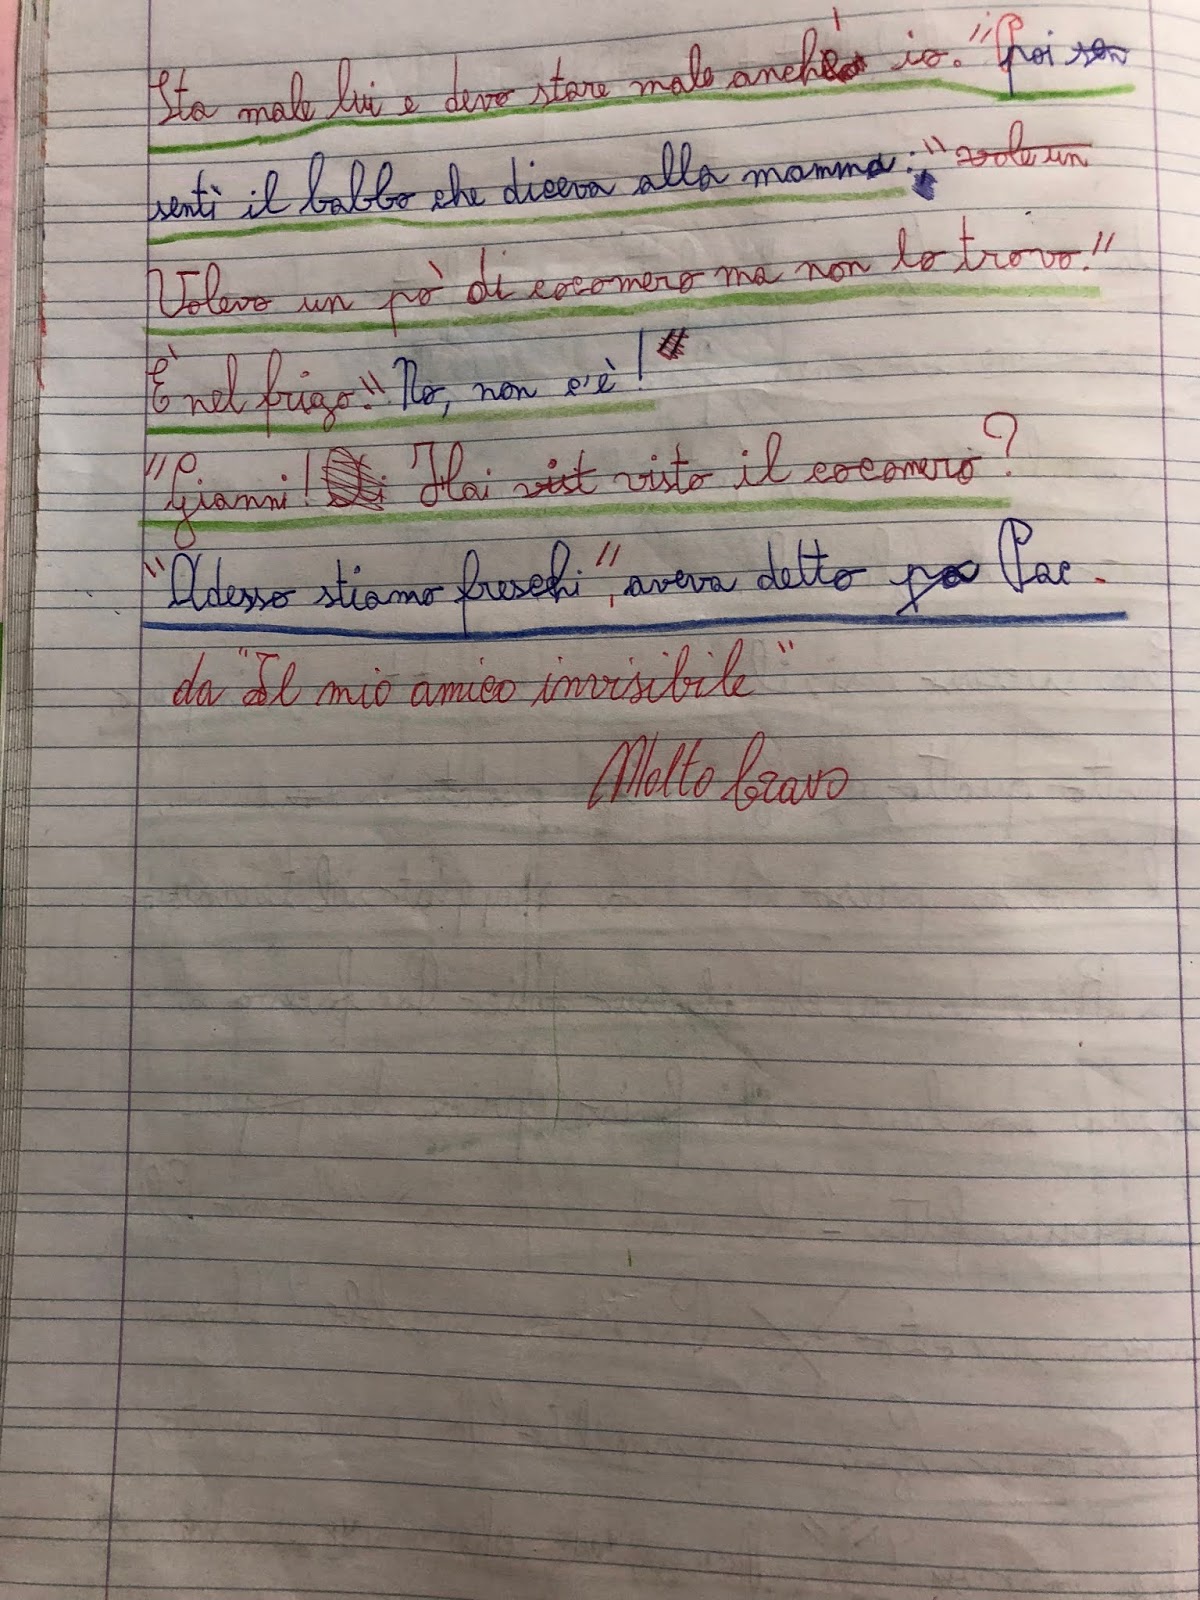 Sta male lui e devo stare male anch' io." Poi sen
sentì il babbo che diceva alla mamma:" vole un
Volevo un pò di cocomero ma non lo trovo."
È nel frigo." No, non c'è!
"Gianni! Hai vist visto il cocomero?
"Adesso stiamo freschi", aveva detto pa Pac.
da "Il mio amico invisibile"
Molto bravo